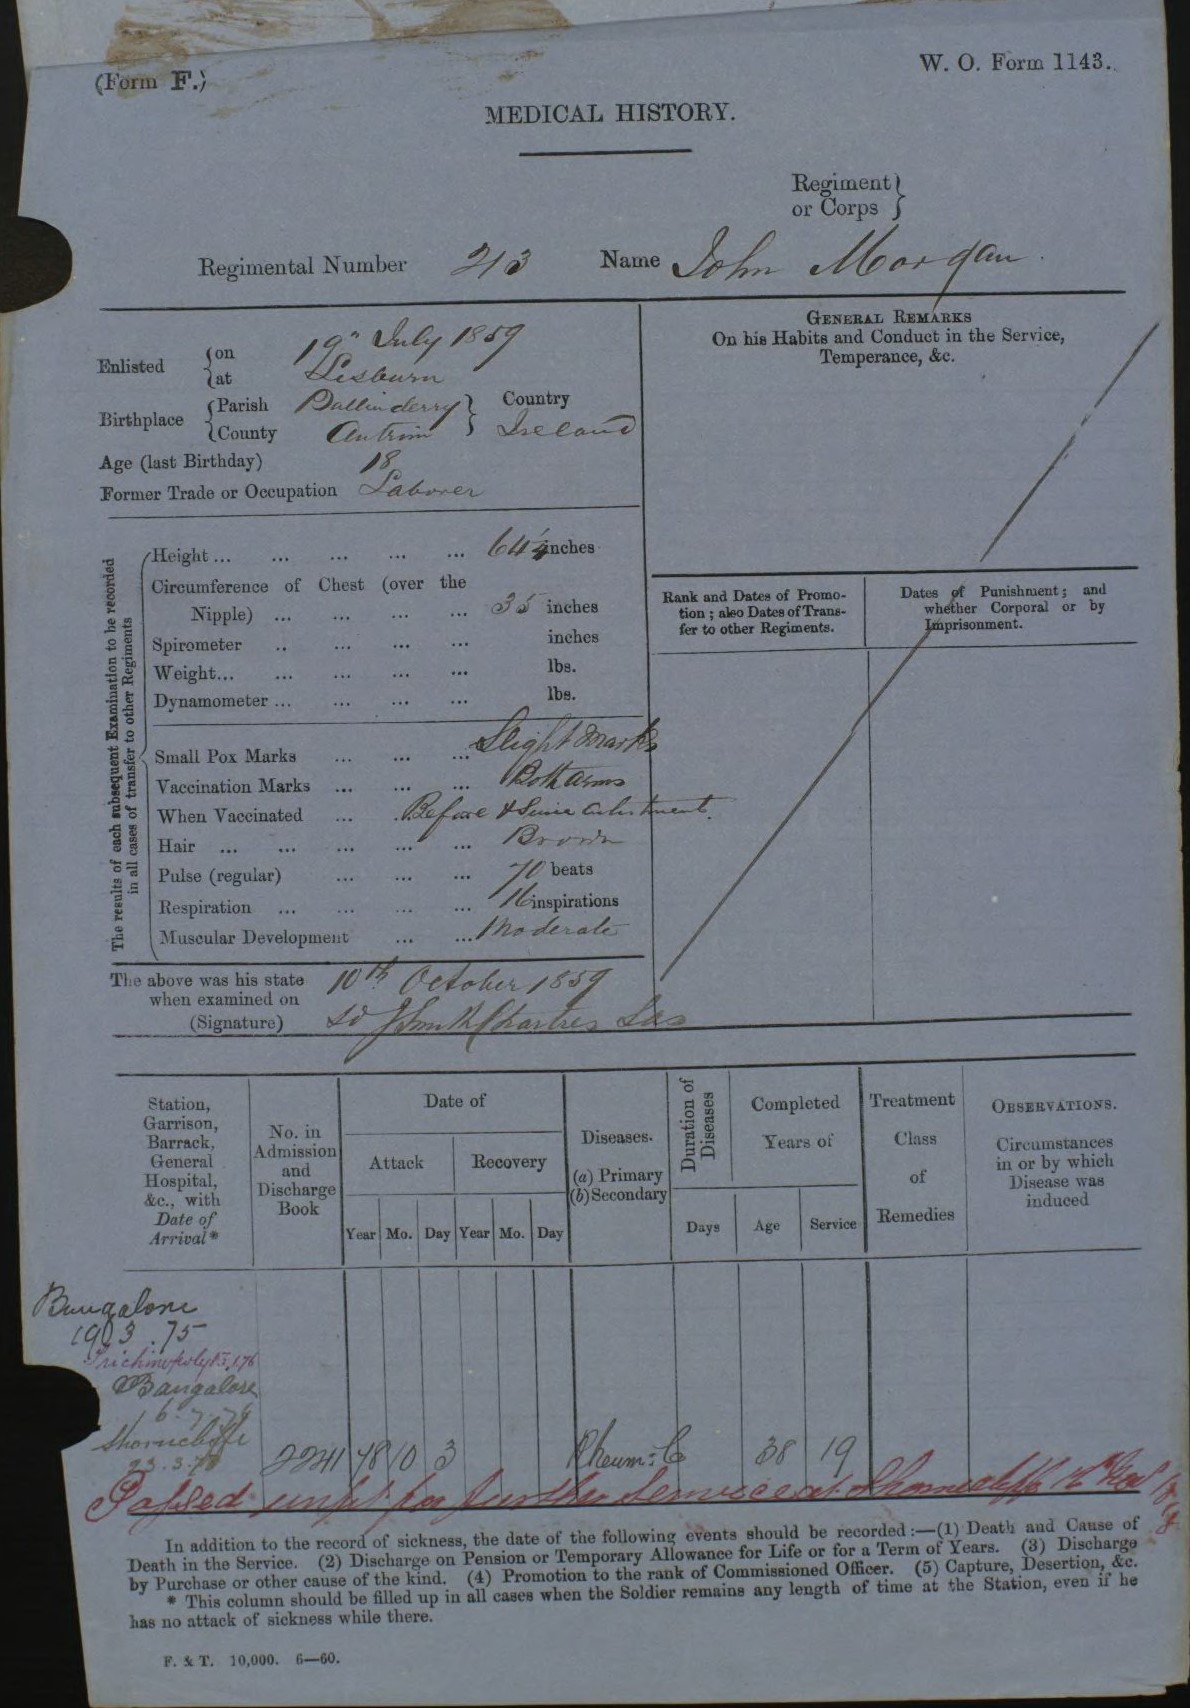 (Form F.)
W. O. Form 1143.
MEDICAL HISTORY.
Regiment
or Corps
Regimental Number 213 Name John Morgan
Enlisted on 19" July 1859
at Lisburn
Birthplace Parish Ballinderry Country
County Antrim Ireland
Age (last Birthday) 18
Former Trade or Occupation Laborer
GENERAL REMARKS
On his Habits and Conduct in the Service,
Temperance, &c.
The results of each subsequent Examination to be recorded
in all cases of transfer to other Regiments
Height ... ... ... ... ... 64 1/4 inches
Circumference of Chest (over the
Nipple) ... ... ... ... 35 inches
Spirometer .. ... ... ... inches
Weight... ... ... ... ... lbs.
Dynamometer ... ... ... ... lbs.
Rank and Dates of Promo-
tion; also Dates of Trans-
fer to other Regiments.
Dates of Punishment; and
whether Corporal or by
Imprisonment.
Small Pox Marks ... ... ... Slight Marks
Vaccination Marks ... ... ... Both Arms
When Vaccinated ... Before & Since
Hair ... ... ... ... ... Brown
Pulse (regular) ... ... ... 70 beats
Respiration ... ... ... ... 16 inspirations
Muscular Development ... ... Moderate
The above was his state
when examined on 10th October 1859
(Signature)
Station,
Garrison,
Barrack,
General
Hospital,
&c., with
Date of
Arrival*
No. in
Admission
and
Discharge
Book
Date of
Attack Recovery
Year Mo. Day Year Mo. Day
Diseases.
(a) Primary
(b) Secondary
Duration of
Diseases
Days
Completed
Years of
Age Service
Treatment
Class
of
Remedies
OBSERVATIONS.
Circumstances
in or by which
Disease was
induced
Bangalore
.75
Bangalore
Shorncliffe
2241 78 10 3 Rheum: C 38 19
Passed unfit for further Service at Shorncliffe
In addition to the record of sickness, the date of the following events should be recorded:—(1) Death and Cause of
Death in the Service. (2) Discharge on Pension or Temporary Allowance for Life or for a Term of Years. (3) Discharge
by Purchase or other cause of the kind. (4) Promotion to the rank of Commissioned Officer. (5) Capture, Desertion, &c.
* This column should be filled up in all cases when the Soldier remains any length of time at the Station, even if he
has no attack of sickness while there.
F. & T. 10,000. 6—60.